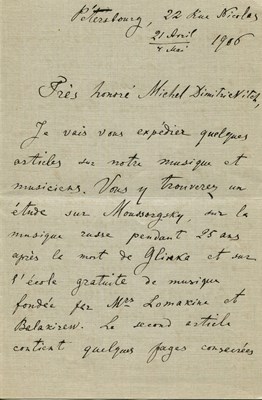 Pétersbourg, 22 Rue Nicolas
21 Avril
4 Mai 1906
Très honoré Michel Dimitriévitch,
Je vais vous expédier quelques
articles sur notre musique et
musiciens. Vous y trouverez un
étude sur Moussorgsky, sur la
musique russe pendant 25 ans
après la mort de Glinka et sur
l'école gratuite de musique
fondée par Mrs Lomakine et
Balakirew. Le second article
contient quelques pages consacrées